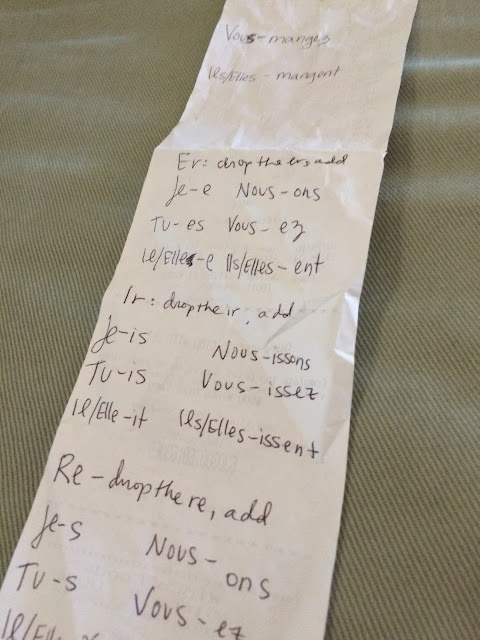 Vous - mangez
Ils/Elles - mangent
Er: drop the er, add
Je-e Nous-ons
Tu-es Vous-ez
Il/Elle-e Ils/Elles-ent
Ir: drop the ir, add
Je-is Nous-issons
Tu-is Vous-issez
Il/Elle-it Ils/Elles-issent
Re-drop the re, add
Je-s Nous-ons
Tu-s Vous-ez
Il/Elle